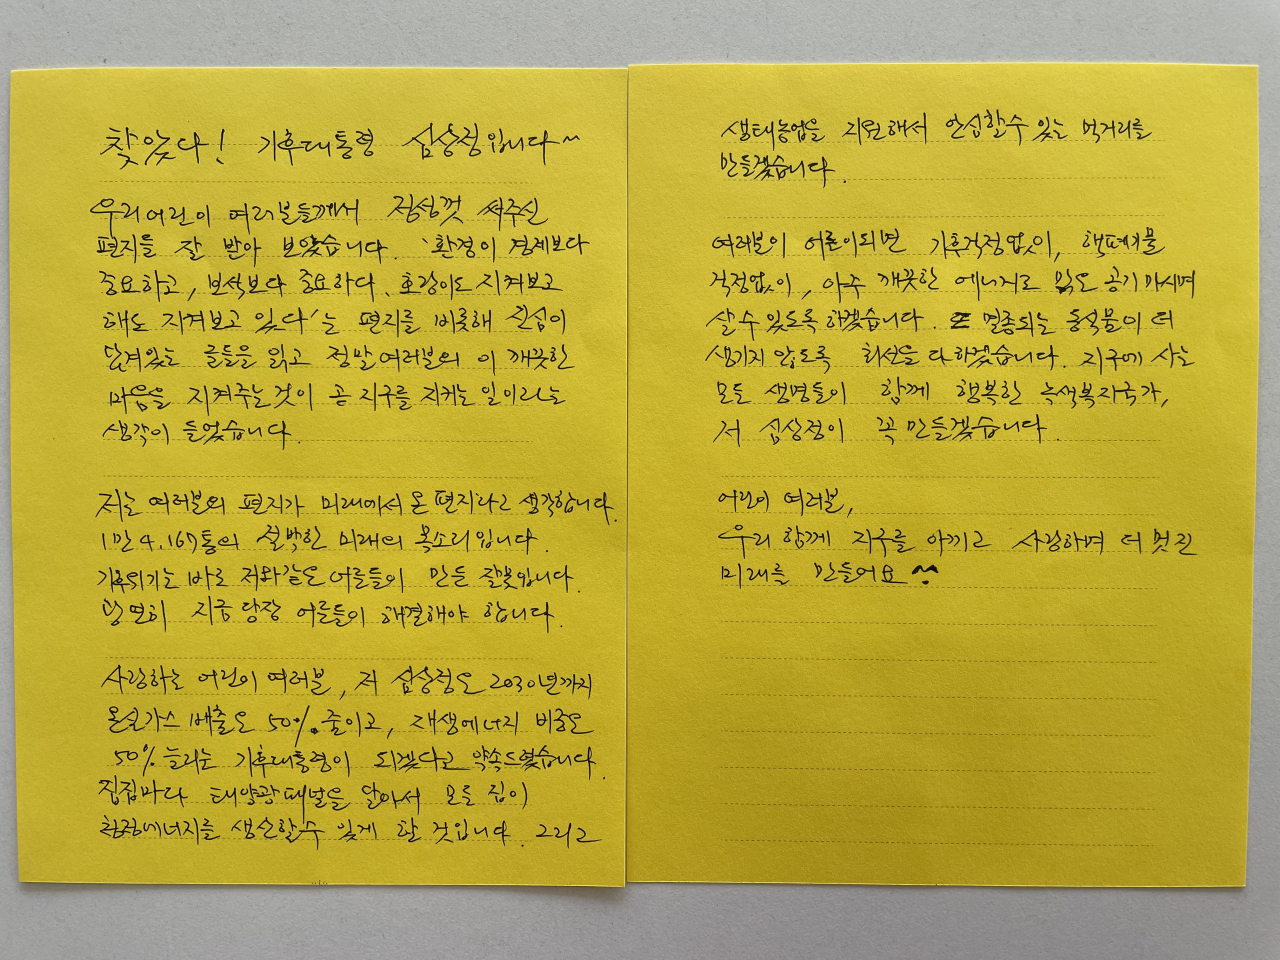 찾았다! 기후대통령 심상정입니다~
우리 어린이 여러분들께서 정성껏 써주신
편지를 잘 받아 보았습니다. '환경이 경제보다
중요하고, 보석보다 중요하다. 호랑이도 지켜보고
해도 지켜보고 있다'는 편지를 비롯해 진심이
담겨있는 글들을 읽고 정말 여러분의 이 깨끗한
마음을 지켜주는 것이 곧 지구를 지키는 일이라는
생각이 들었습니다.
저는 여러분의 편지가 미래에서 온 편지라고 생각합니다.
1만 4,167통의 절박한 미래의 목소리입니다.
기후위기는 바로 저와 같은 어른들이 만든 잘못입니다.
당연히 지금 당장 어른들이 해결해야 합니다.
사랑하는 어린이 여러분, 저 심상정은 2030년까지
온실가스 배출은 50% 줄이고, 재생에너지 비중은
50% 늘리는 기후대통령이 되겠다고 약속드렸습니다.
집집마다 태양광 패널을 달아서 모든 집이
청정에너지를 생산할 수 있게 할 것입니다. 그리고
생태농업을 지원해서 안심할 수 있는 먹거리를
만들겠습니다.
여러분이 어른이 되면 기후걱정없이, 핵폐기물
걱정없이, 아주 깨끗한 에너지로 맑은 공기 마시며
살 수 있도록 하겠습니다. 멸종되는 동식물이 더
생기지 않도록 최선을 다하겠습니다. 지구에 사는
모든 생명들이 함께 행복한 녹색복지국가,
저 심상정이 꼭 만들겠습니다.
어린이 여러분,
우리 함께 지구를 아끼고 사랑하며 더 멋진
미래를 만들어요 ^^